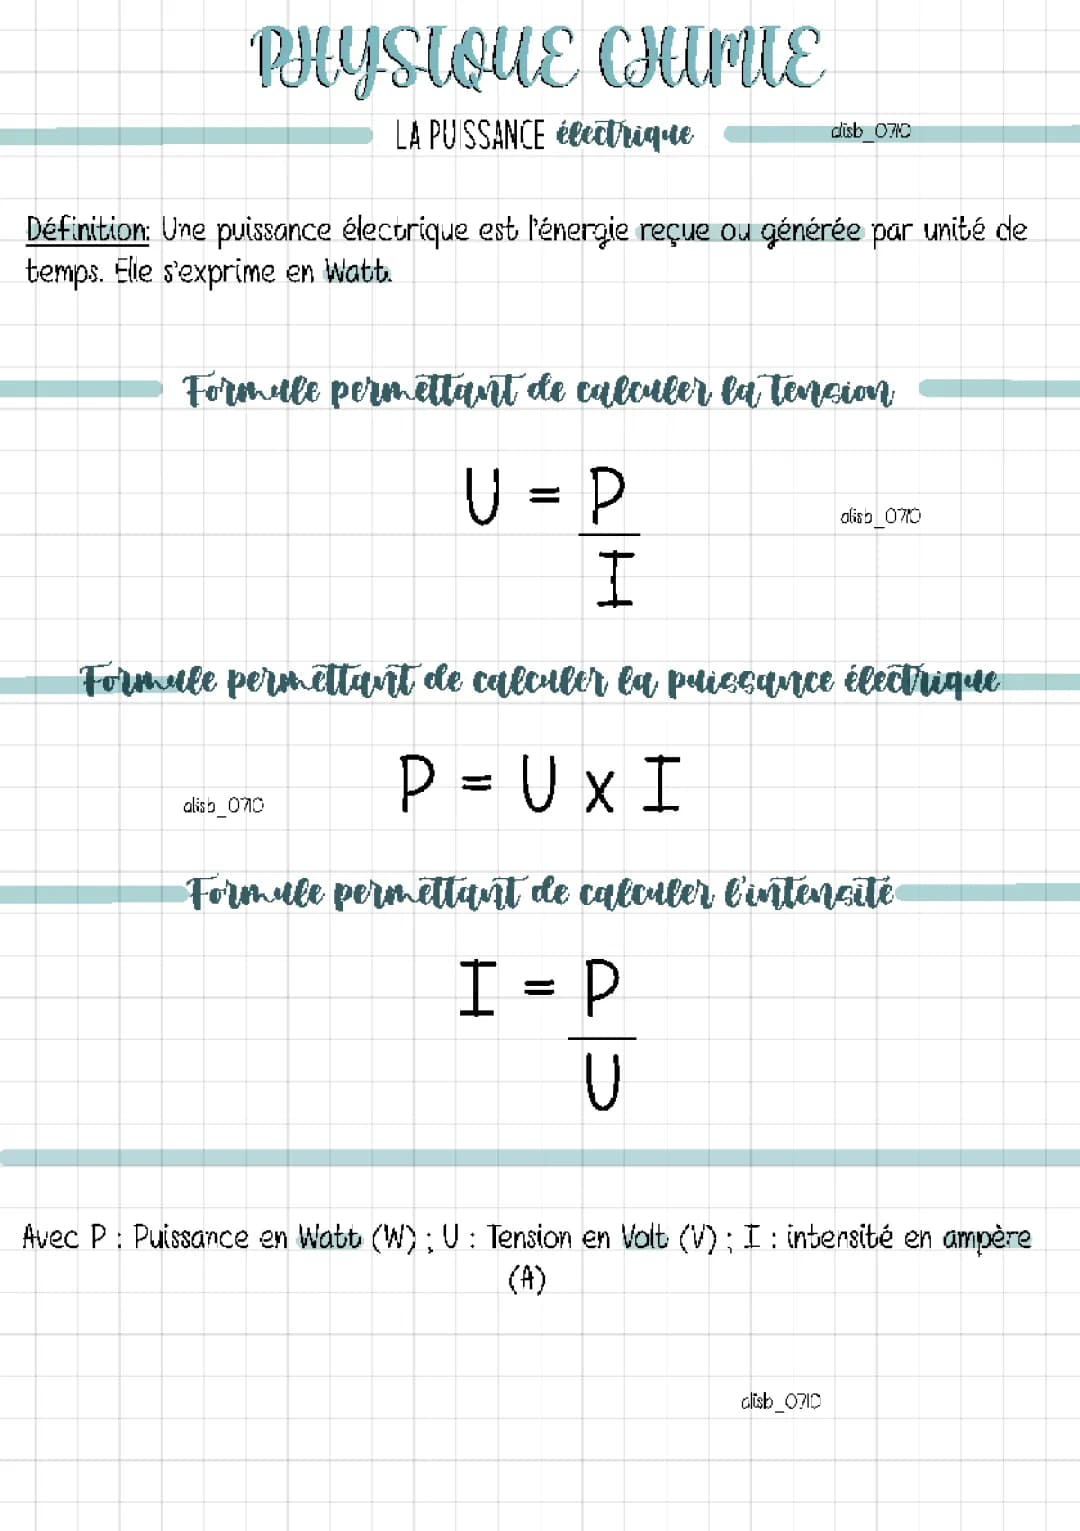 PHYSIQUE CHIMIE
LA PUISSANCE électrique
alisb_0710
Définition: Une puissance électrique est l'énergie reçue ou générée par unité de
temps. Elle s'exprime en Watt.
Formule permettant de calculer la tension
U = P
I
alisb_0710
Formule permettant de calculer la puissance électrique
P = U x I
alisb_0710
Formule permettant de calculer l'intensité
I = P
U
Avec P : Puissance en Watt (W) ; U : Tension en Volt (V) ; I : intensité en ampère
(A)
alisb_0710